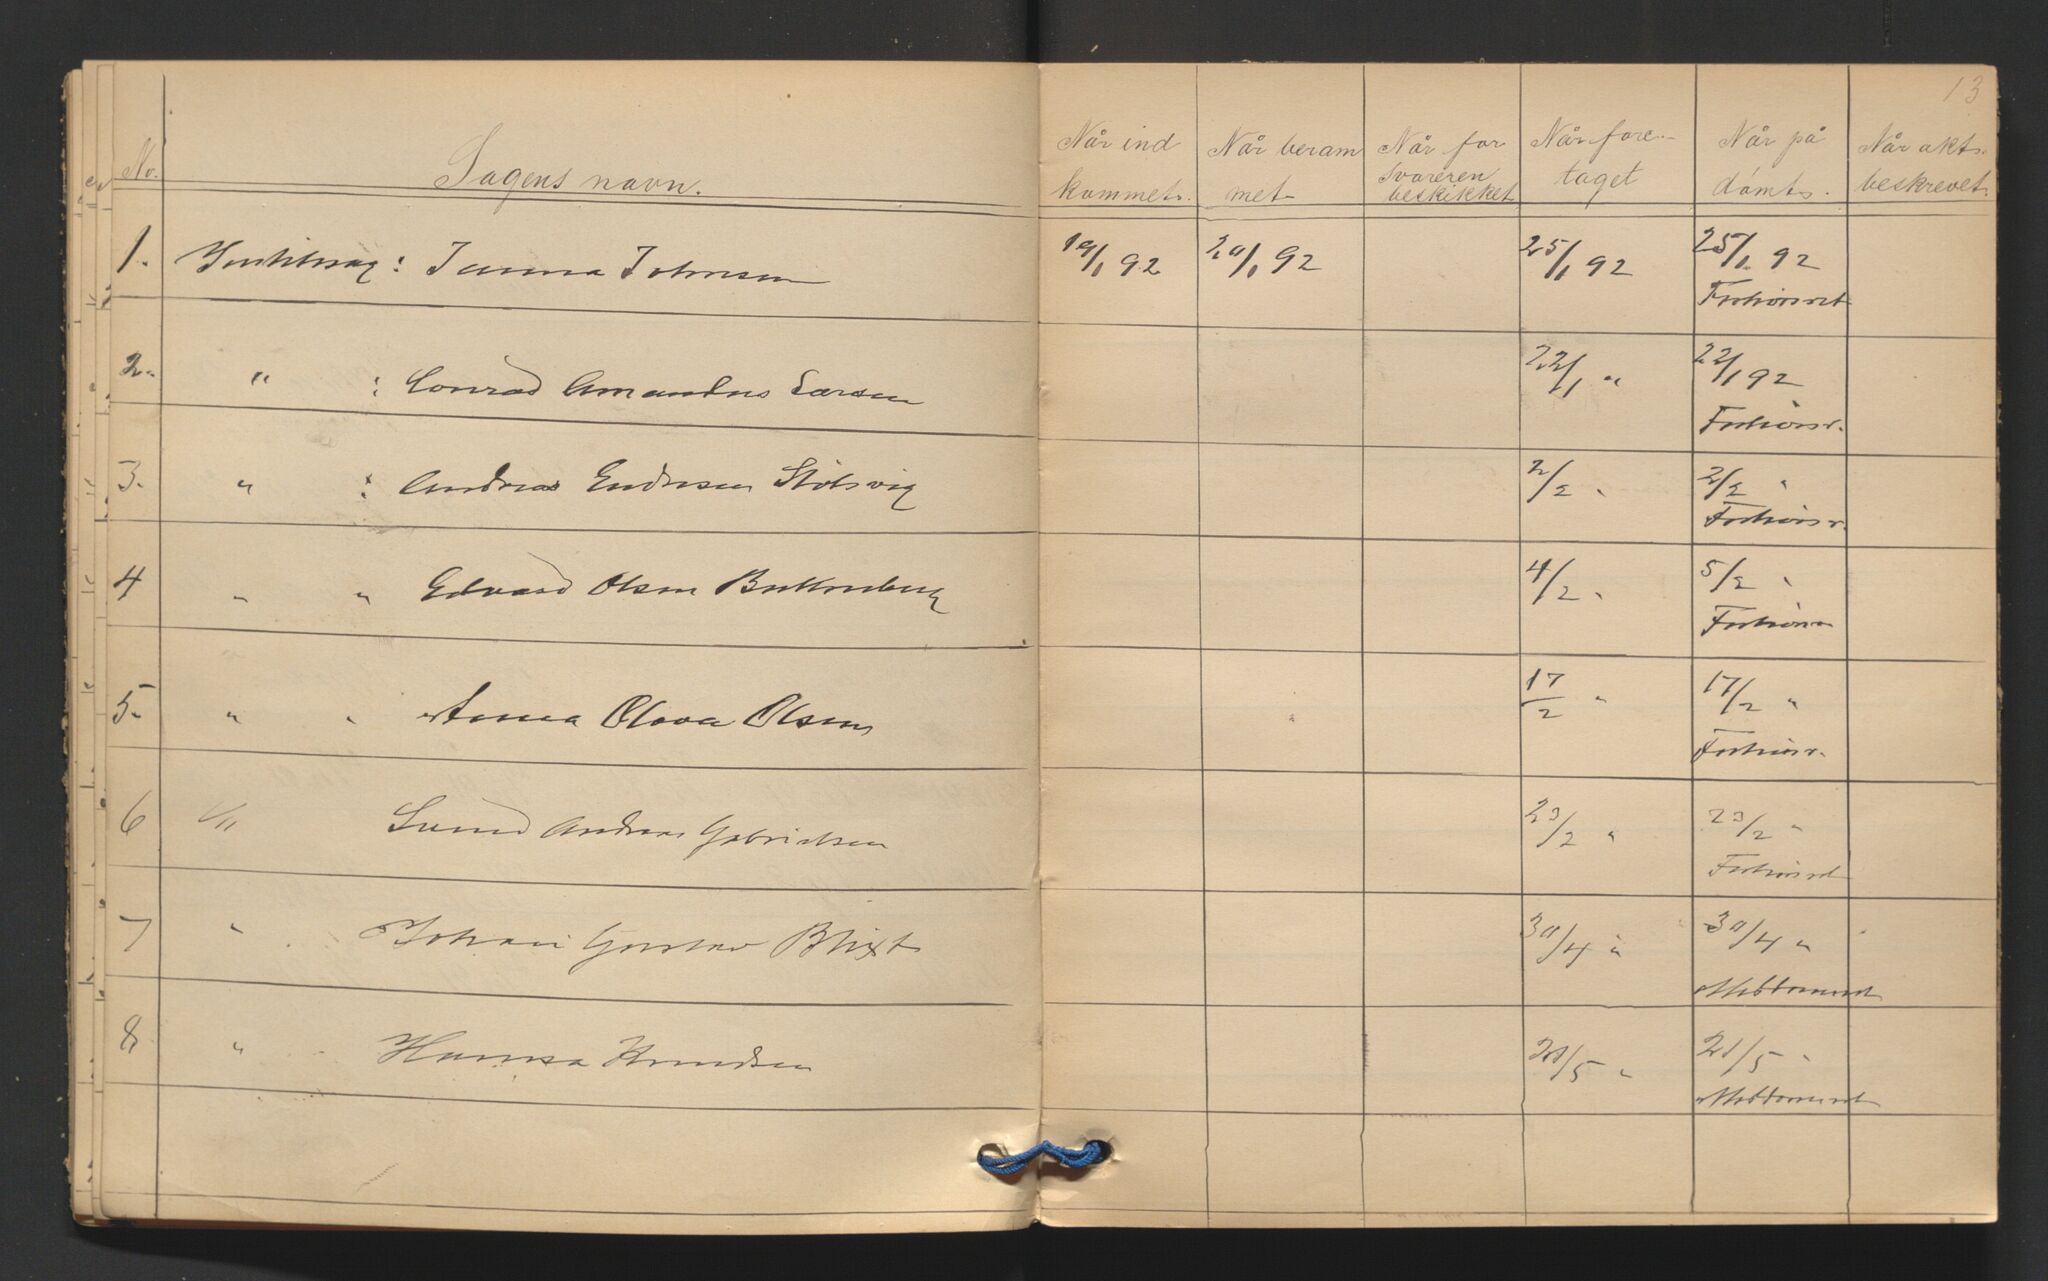 13
No. Sagens navn. Når ind Når beram Når for Når fore- Når på Når akts-
kommet. met svareren taget dømts. beskrevet.
beskikket
1. Justitssag: Janna Johnsen 19/1 92 20/1 92 25/1 92 25/1 92
Forhørsret
2. " : Conrad Amandus Larsen 22/1 " 22/1 92
Forhørsr.
3. " : Andreas Endresen Stølsvig 2/2 " 2/2 "
Forhørsr.
4 " " Edvard Olsen 4/2 " 5/2 "
Forhørsr
5. " " Anna Olava Olsen 17/2 " 17/2 "
Forhørsr.
6 " Svend Andreas Gabrielsen 23/2 " 23/2 "
Forhørsret
7 " Johan Gustav Blixt 30/4 " 30/4 "
Meddomsret
8 " Hansa Knudsen 21/5 " 21/5 "
Meddomsret